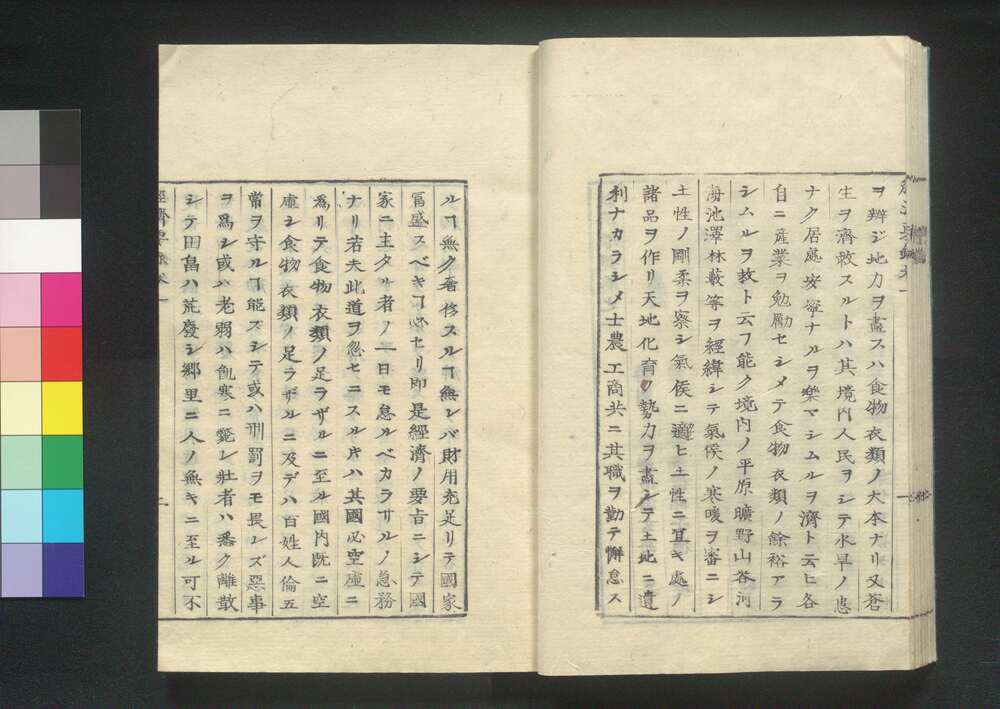 ヲ辨ジ地力ヲ盡スハ食物衣類ノ大本ナリ又蒼
生ヲ濟救スルトハ其境内人民ヲシテ水旱ノ患
ナク居處安寧ナルヲ樂マシムルヲ濟ト云ヒ各
自ニ産業ヲ勉勵セシメテ食物衣類ノ餘裕アラ
シムルヲ救ト云フ能ク境内ノ平原曠野山谷河
海池澤林藪等ヲ經緯シテ氣候ノ寒暖ヲ審ニシ
土性ノ剛柔ヲ察シ氣侯ニ適ヒ土性ニ宜キ處ノ
諸品ヲ作リ天地化育ノ勢力ヲ盡シテ土地ニ遺
利ナカラシメ士農工商共ニ其職ヲ勤テ懈怠ス
ルヿ無ク奢侈スルヿ無レバ財用充足リテ國家
冨盛スベキヿ必セリ即是經濟ノ要旨ニシテ國
家ニ主タル者ノ一日モ怠ルベカラザルノ急務
ナリ若夫此道ヲ忽セニスル𪜈ハ其國必空虚ニ
爲リテ食物衣類ノ足ラザルニ至ル國内既ニ空
虚シ食物衣類ノ足ラザルニ及デハ百姓人倫五
常ヲ守ルヿ能ズシテ或ハ刑罰ヲモ畏レズ惡事
ヲ爲シ或ハ老弱ハ飢寒ニ斃レ壯者ハ悉ク離散
シテ田畠ハ荒廢シ郷里ニ人ノ無キニ至ル可不